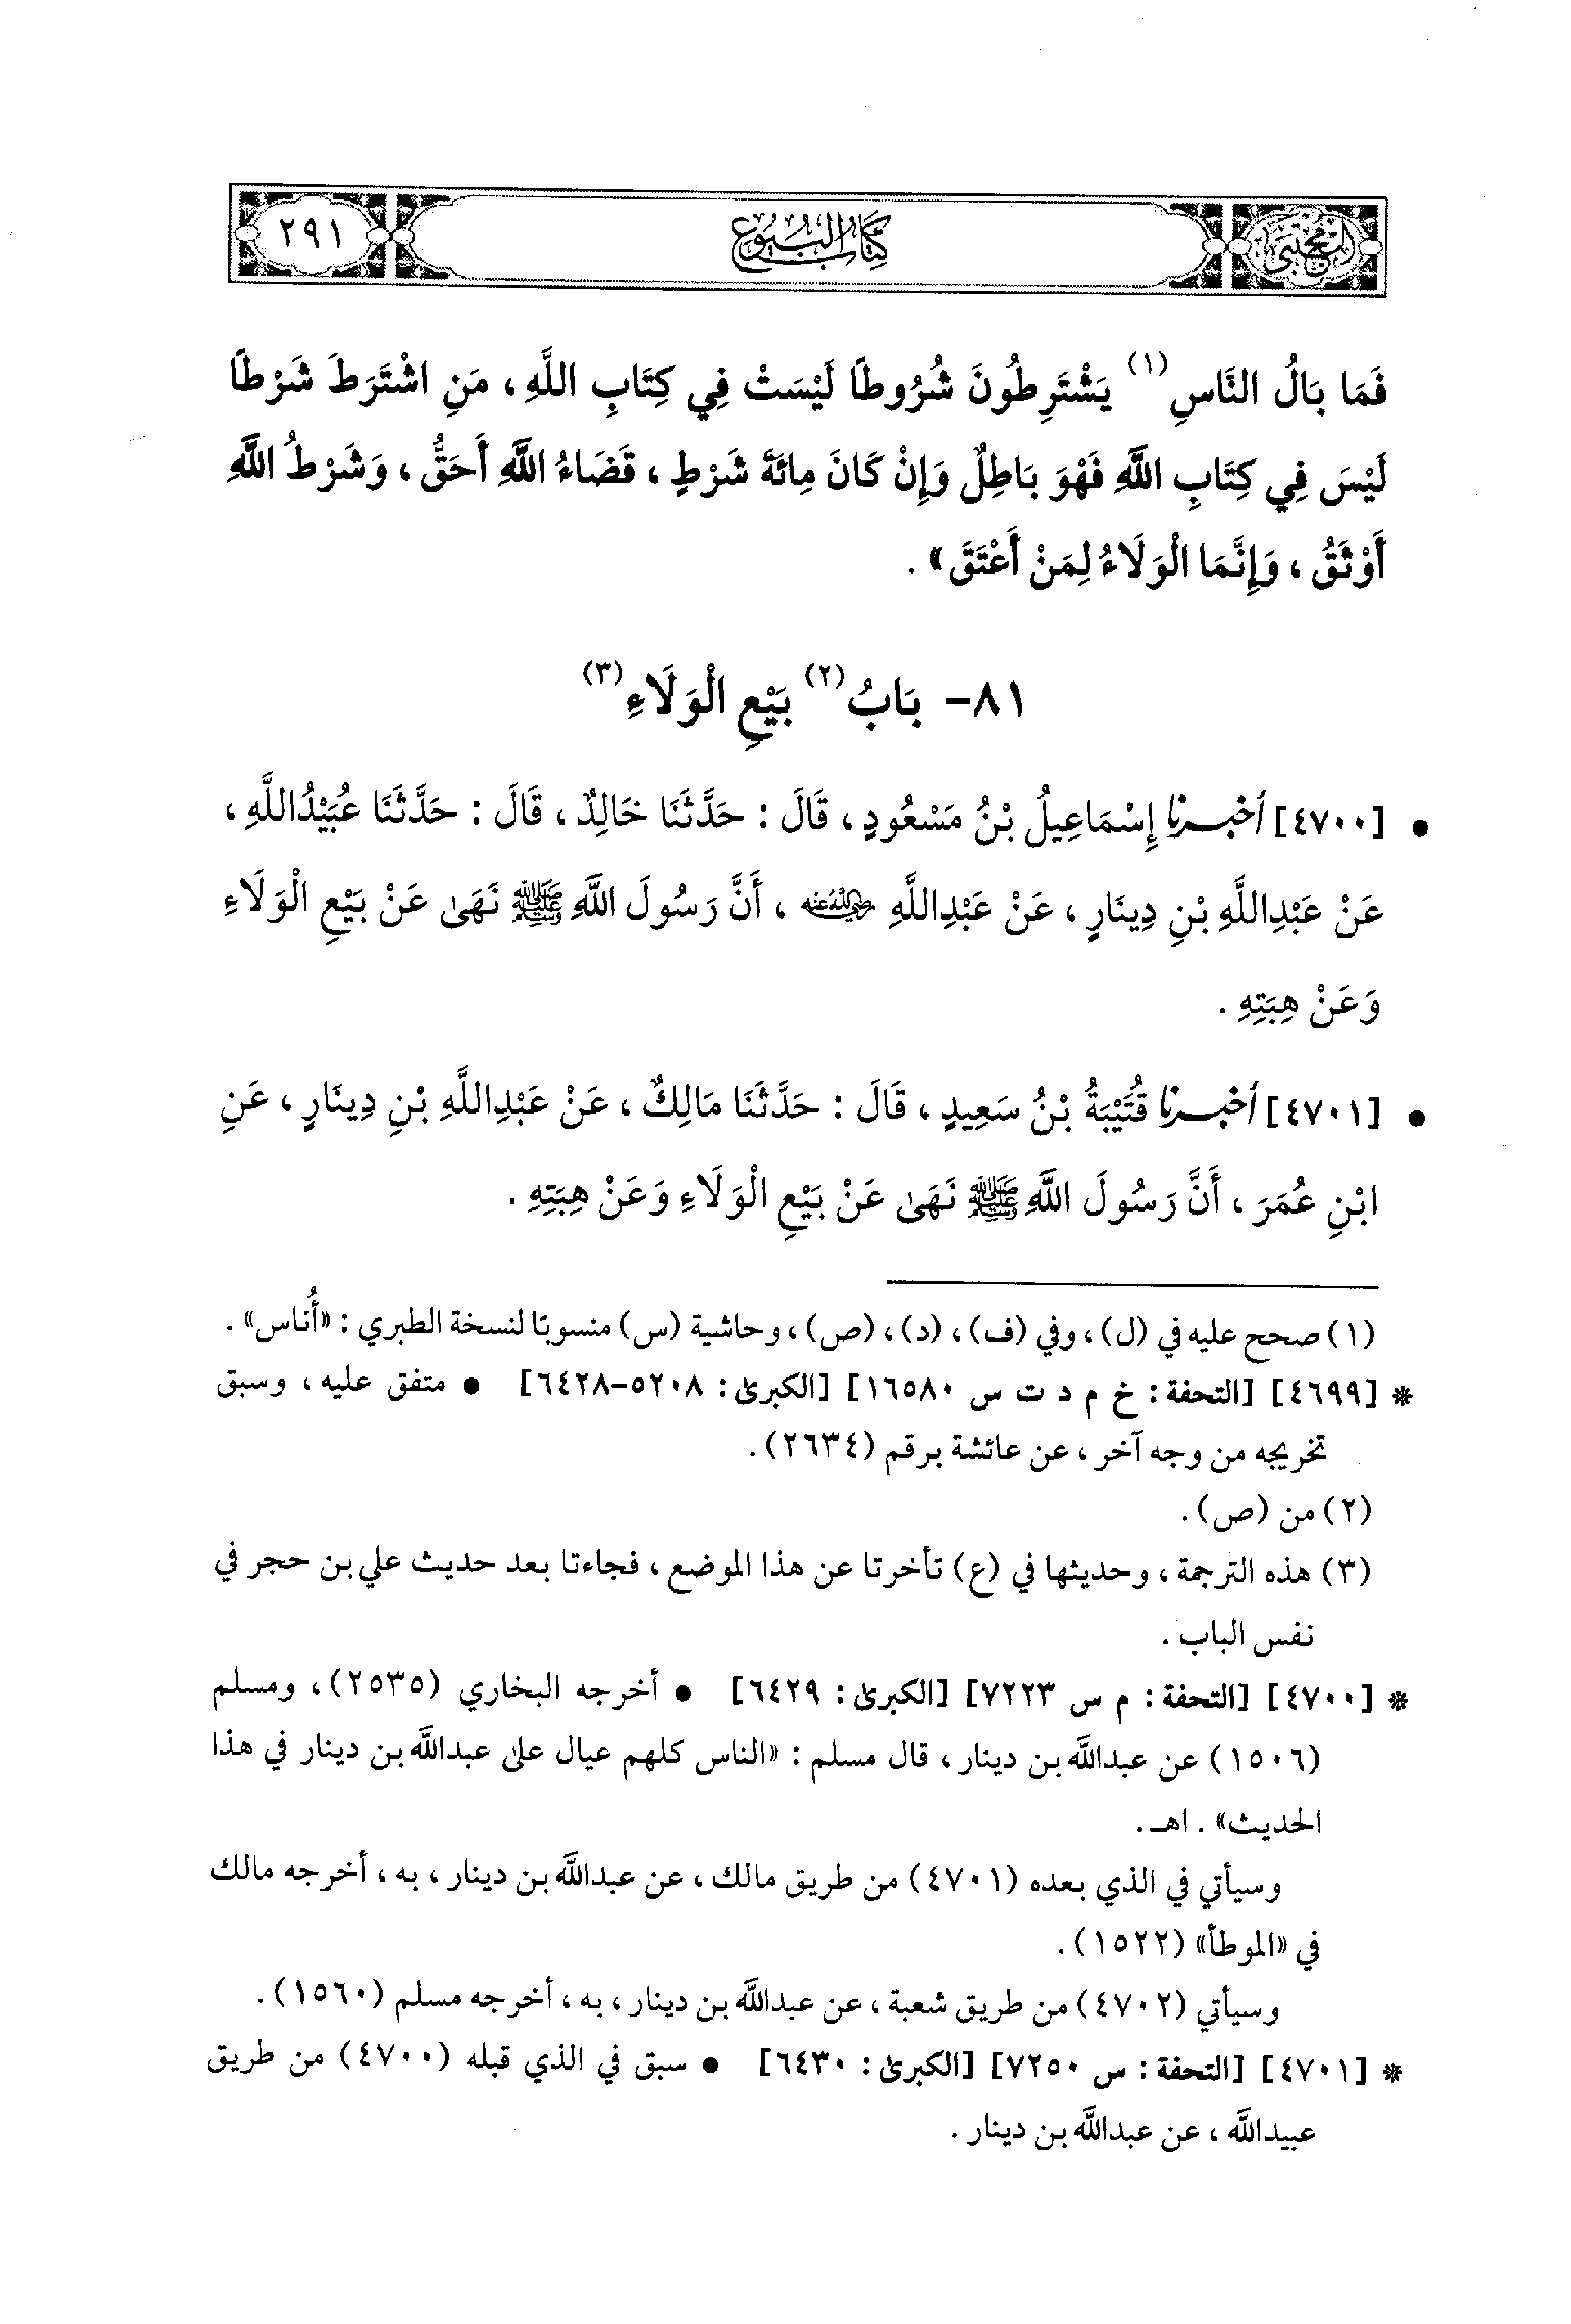 المجتبى كتاب البيوع ٢٩١
فَمَا بَالُ النَّاسِ (١) يَشْتَرِطُونَ شُرُوطًا لَيْسَتْ فِي كِتَابِ اللَّهِ ، مَنِ اشْتَرَطَ شَرْطًا
لَيْسَ فِي كِتَابِ اللَّهِ فَهْوَ بَاطِلٌ وَإِنْ كَانَ مِائَةَ شَرْطٍ ، قَضَاءُ اللَّهِ أَحَقُّ ، وَشَرْطُ اللَّهِ
أَوْثَقُ ، وَإِنَّمَا الْوَلَاءُ لِمَنْ أَعْتَقَ» .
٨١- بَابُ (٢) بَيْعِ الْوَلَاءِ (٣)
• [٤٧٠٠] أخبرنا إِسْمَاعِيلُ بْنُ مَسْعُودٍ ، قَالَ : حَدَّثَنَا خَالِدٌ ، قَالَ : حَدَّثَنَا عُبَيْدُاللَّهِ ،
عَنْ عَبْدِاللَّهِ بْنِ دِينَارٍ ، عَنْ عَبْدِاللَّهِ رضي الله عنه ، أَنَّ رَسُولَ اللَّهِ ﷺ نَهَى عَنْ بَيْعِ الْوَلَاءِ
وَعَنْ هِبَتِهِ .
• [٤٧٠١] أخبرنا قُتَيْبَةُ بْنُ سَعِيدٍ ، قَالَ : حَدَّثَنَا مَالِكٌ ، عَنْ عَبْدِاللَّهِ بْنِ دِينَارٍ ، عَنِ
ابْنِ عُمَرَ ، أَنَّ رَسُولَ اللَّهِ ﷺ نَهَى عَنْ بَيْعِ الْوَلَاءِ وَعَنْ هِبَتِهِ .
(١) صحح عليه في (ل) ، وفي (ف) ، (د) ، (ص) ، وحاشية (س) منسوبًا لنسخة الطبري : «أُناس» .
* [٤٦٩٩] [التحفة : خ م د ت س ١٦٥٨٠] [الكبرى : ٥٢٠٨-٦٤٢٨] • متفق عليه ، وسبق
تخريجه من وجه آخر ، عن عائشة برقم (٢٦٣٤) .
(٢) من (ص) .
(٣) هذه الترجمة ، وحديثها في (ع) تأخرتا عن هذا الموضع ، فجاءتا بعد حديث علي بن حجر في
نفس الباب .
* [٤٧٠٠] [التحفة : م س ٧٢٢٣] [الكبرى : ٦٤٢٩] • أخرجه البخاري (٢٥٣٥) ، ومسلم
(١٥٠٦) عن عبداللَّه بن دينار ، قال مسلم : «الناس كلهم عيال على عبداللَّه بن دينار في هذا
الحديث» . اهـ .
وسيأتي في الذي بعده (٤٧٠١) من طريق مالك ، عن عبداللَّه بن دينار ، به ، أخرجه مالك
في «الموطأ» (١٥٢٢) .
وسيأتي (٤٧٠٢) من طريق شعبة ، عن عبداللَّه بن دينار ، به ، أخرجه مسلم (١٥٦٠) .
* [٤٧٠١] [التحفة : س ٧٢٥٠] [الكبرى : ٦٤٣٠] • سبق في الذي قبله (٤٧٠٠) من طريق
عبيداللَّه ، عن عبداللَّه بن دينار .